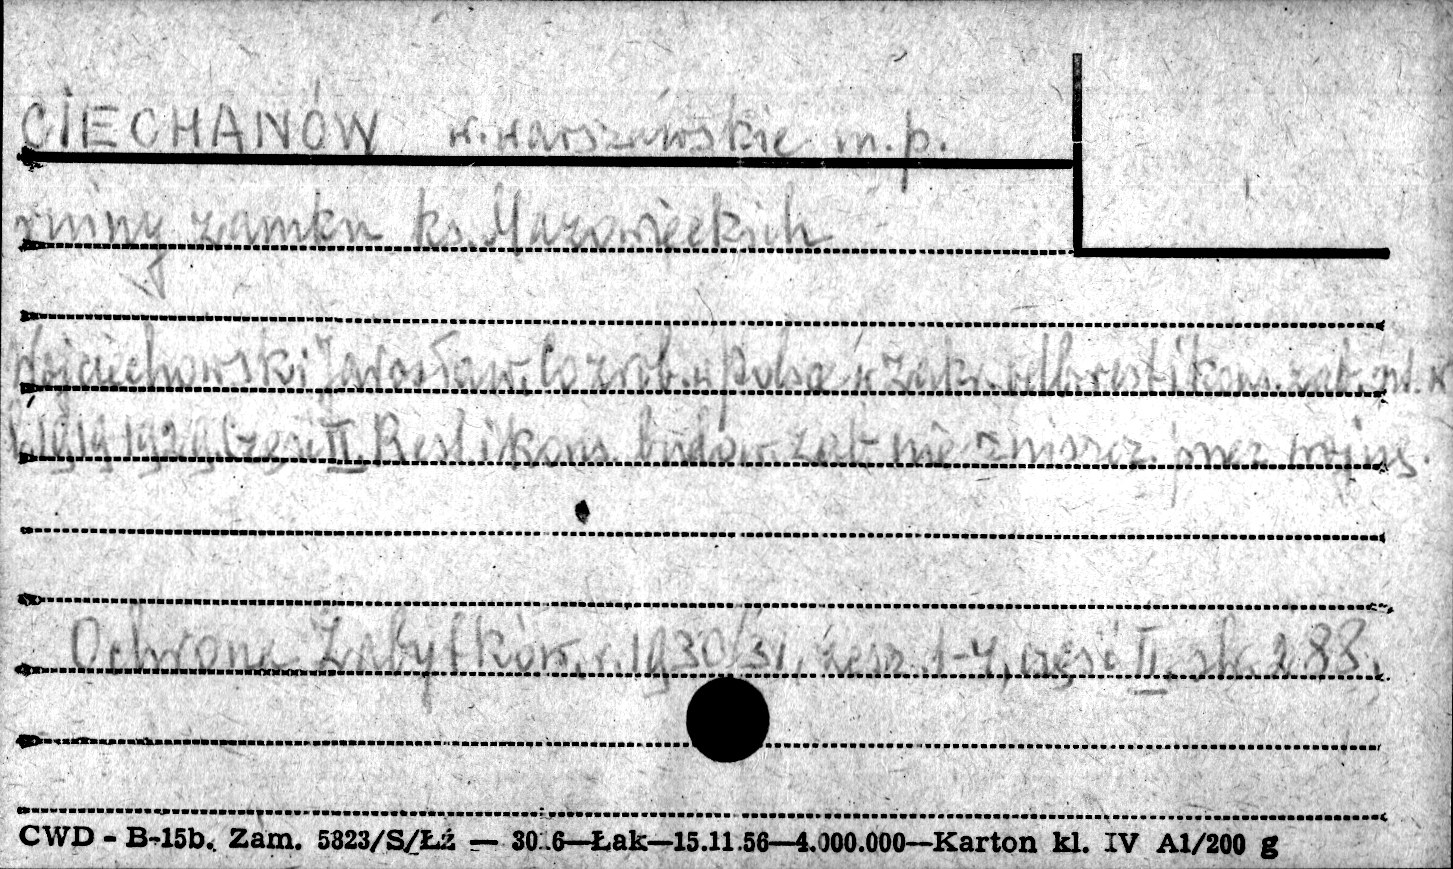 CIECHANÓW w. warszawskie m. p.
ruiny zamku ks. Mazowieckich
Wojciechowski Jarosław. Co zrob. w Polsce w zakr. odb. rest. i kons. zab. szt. w
l. 1919-1929 Część II. Rest. i kons. budow. zab. nie zniszcz. przez wojnę.
Ochrona Zabytków, r. 1930/31, zesz. 1-4, część II. str. 288.
CWD - B-15b. Zam. 5323/S/Łź — 30.6—Łak—15.11.56—4.000.000—Karton kl. IV A1/200 g